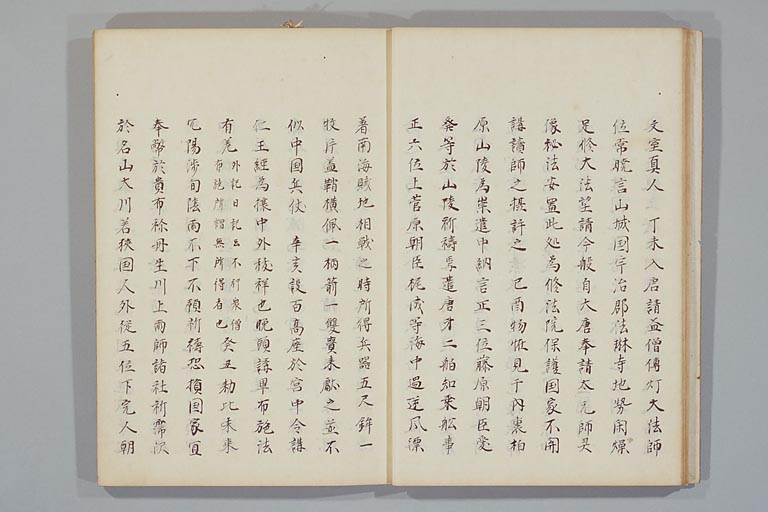 文室真人　丁未入唐請益僧傳灯大法師
位常暁言山城国宇治郡法琳寺地勢閑燥
足修大法望請今般自大唐奉請太元師灵
像秘法安置此処為修法院保護国家不関
講読師之摂許之　己酉物恠見于内裏柏
原山陵為祟遣中納言正三位藤原朝臣愛
発等於山陵祈祷焉遣唐才二舶知乗舩事
正六位上菅原朝臣梶成等海中遇逆風漂
着南海賊地相戦之時所得兵器五尺鉾一
枚片蓋鞘横佩一柄箭一雙賷来献之並不
似中国兵仗　辛亥設百高座於宮中令講
仁王経為攘中外祲祥也晩頭講畢布施法
有差外記日記云不行衆僧
布施所謂無所得者也癸丑勅比来
亢陽渉旬陰雨不下不預祈祷恐損国家宜
奉幣於貴布祢丹生川上雨師諸社祈霈沢
於名山大川若狭国人外従五位下宍人朝